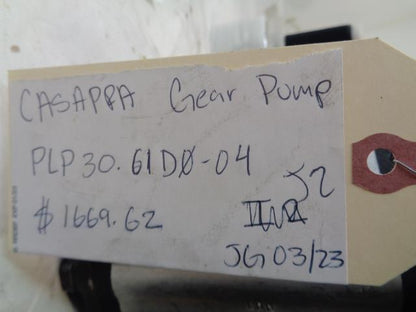 CASAPPA Gear Pump
PLP30.61DØ-04
J2
$1669.62
JG 03/23